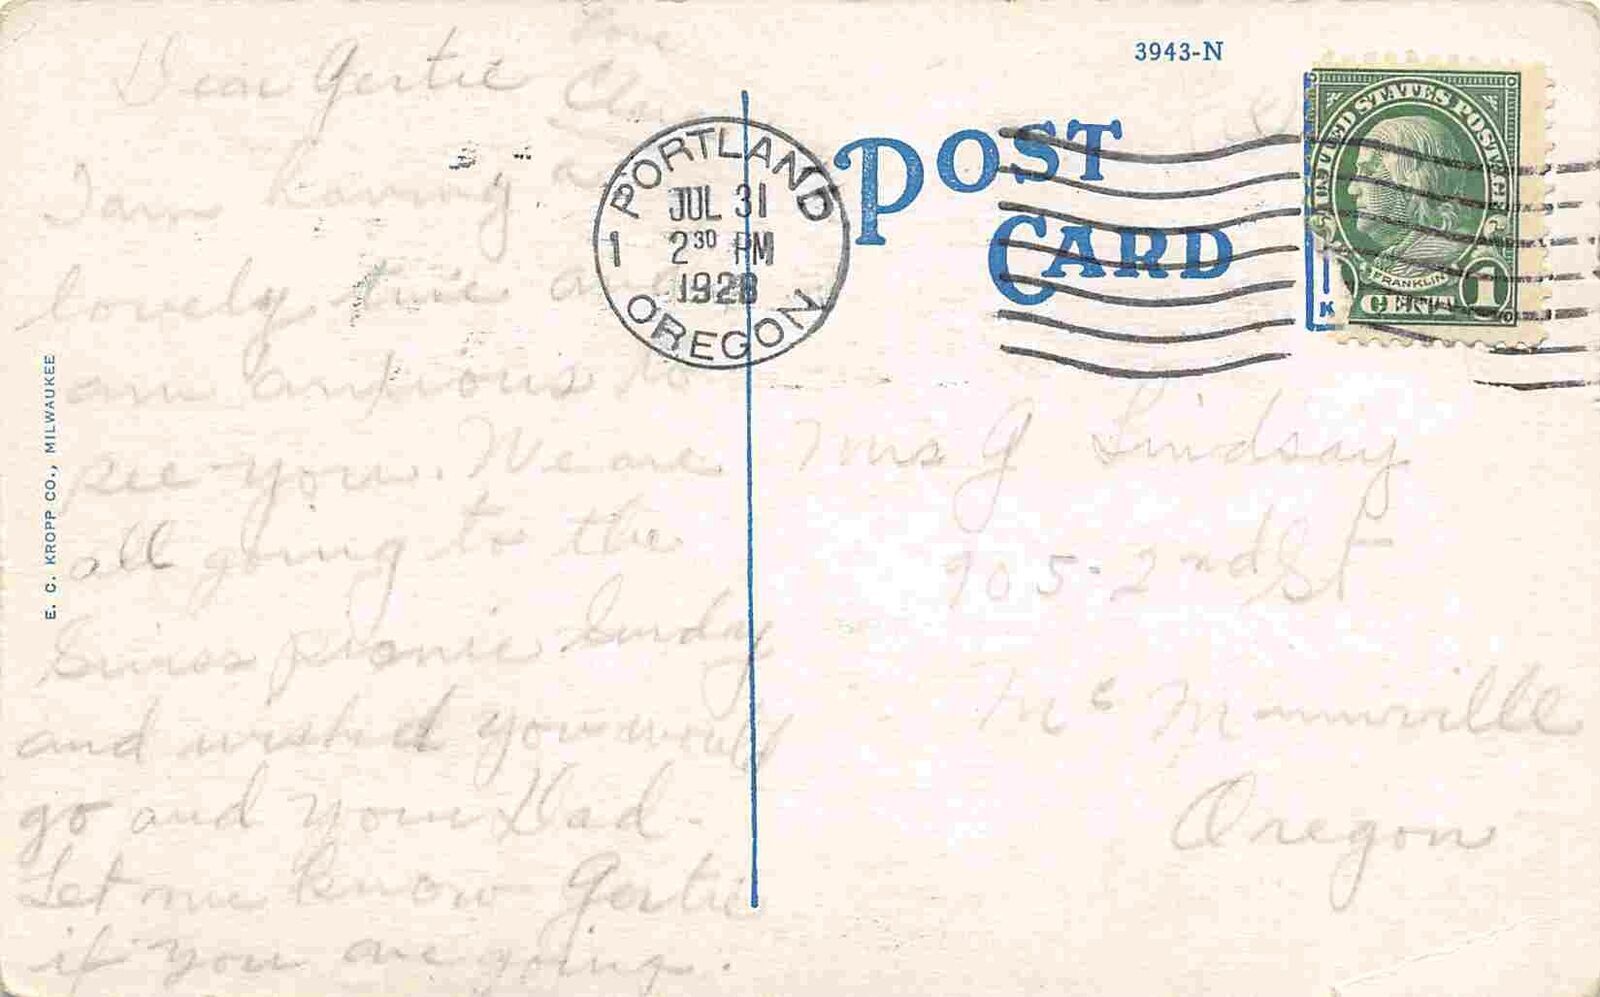 Dear Gertie
I am having a
lovely time and
am anxious to
see you. We are
all going to the
picnic Sunday
and wished you would
go and your Dad -
Let me know Gertie
if you are going.
E. C. KROPP CO., MILWAUKEE
PORTLAND
JUL 31
1 2 30 PM
1928
OREGON
3943-N
POST
CARD
UNITED STATES POSTAGE
FRANKLIN
1 CENT 1
K
Mrs G Lindsay
905-2nd St
Mc Minnville
Oregon